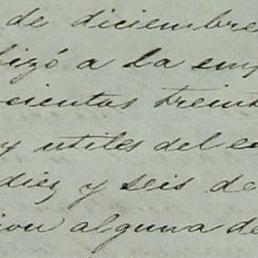 de diciembre
lizó a la emp
cientos treint
y utiles del es
diez y seis de
cion alguna de